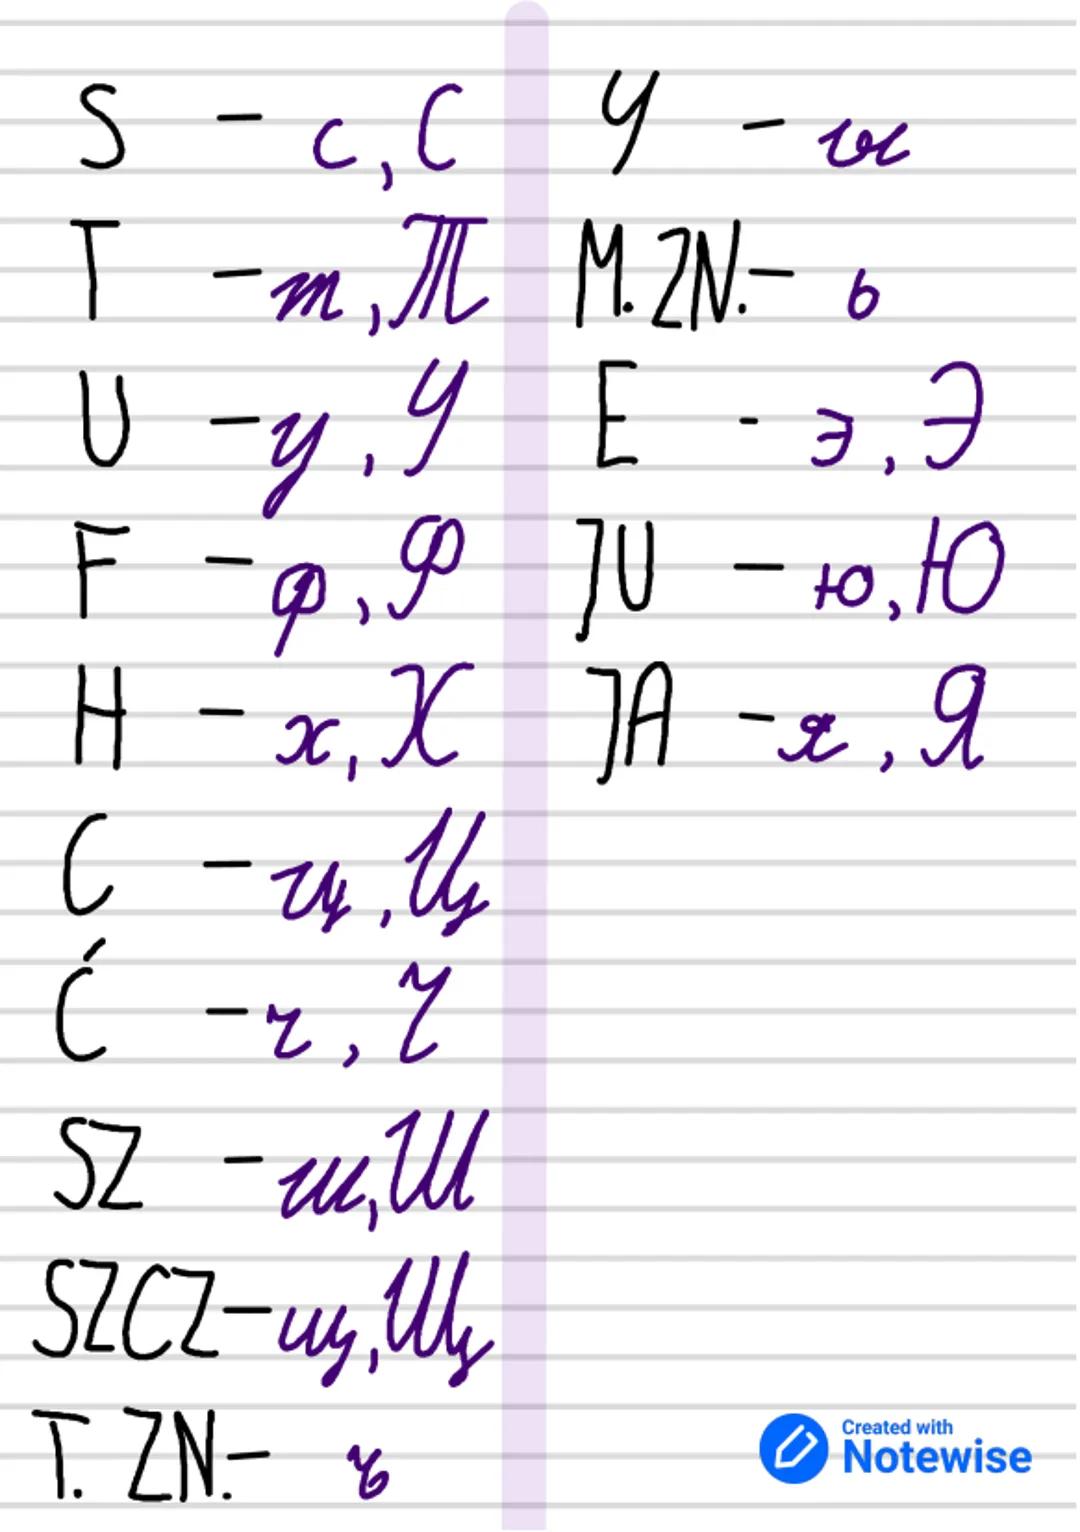 S - с, С
T - т, Т
U - у, У
F - ф, Ф
H - х, Х
C - ц, Ц
Ć - ч, Ч
SZ - ш, Ш
SZCZ - щ, Щ
T. ZN. - ъ
Y - ы
M. ZN. - ь
E - э, Э
JU - ю, Ю
JA - я, Я
Created with
Notewise